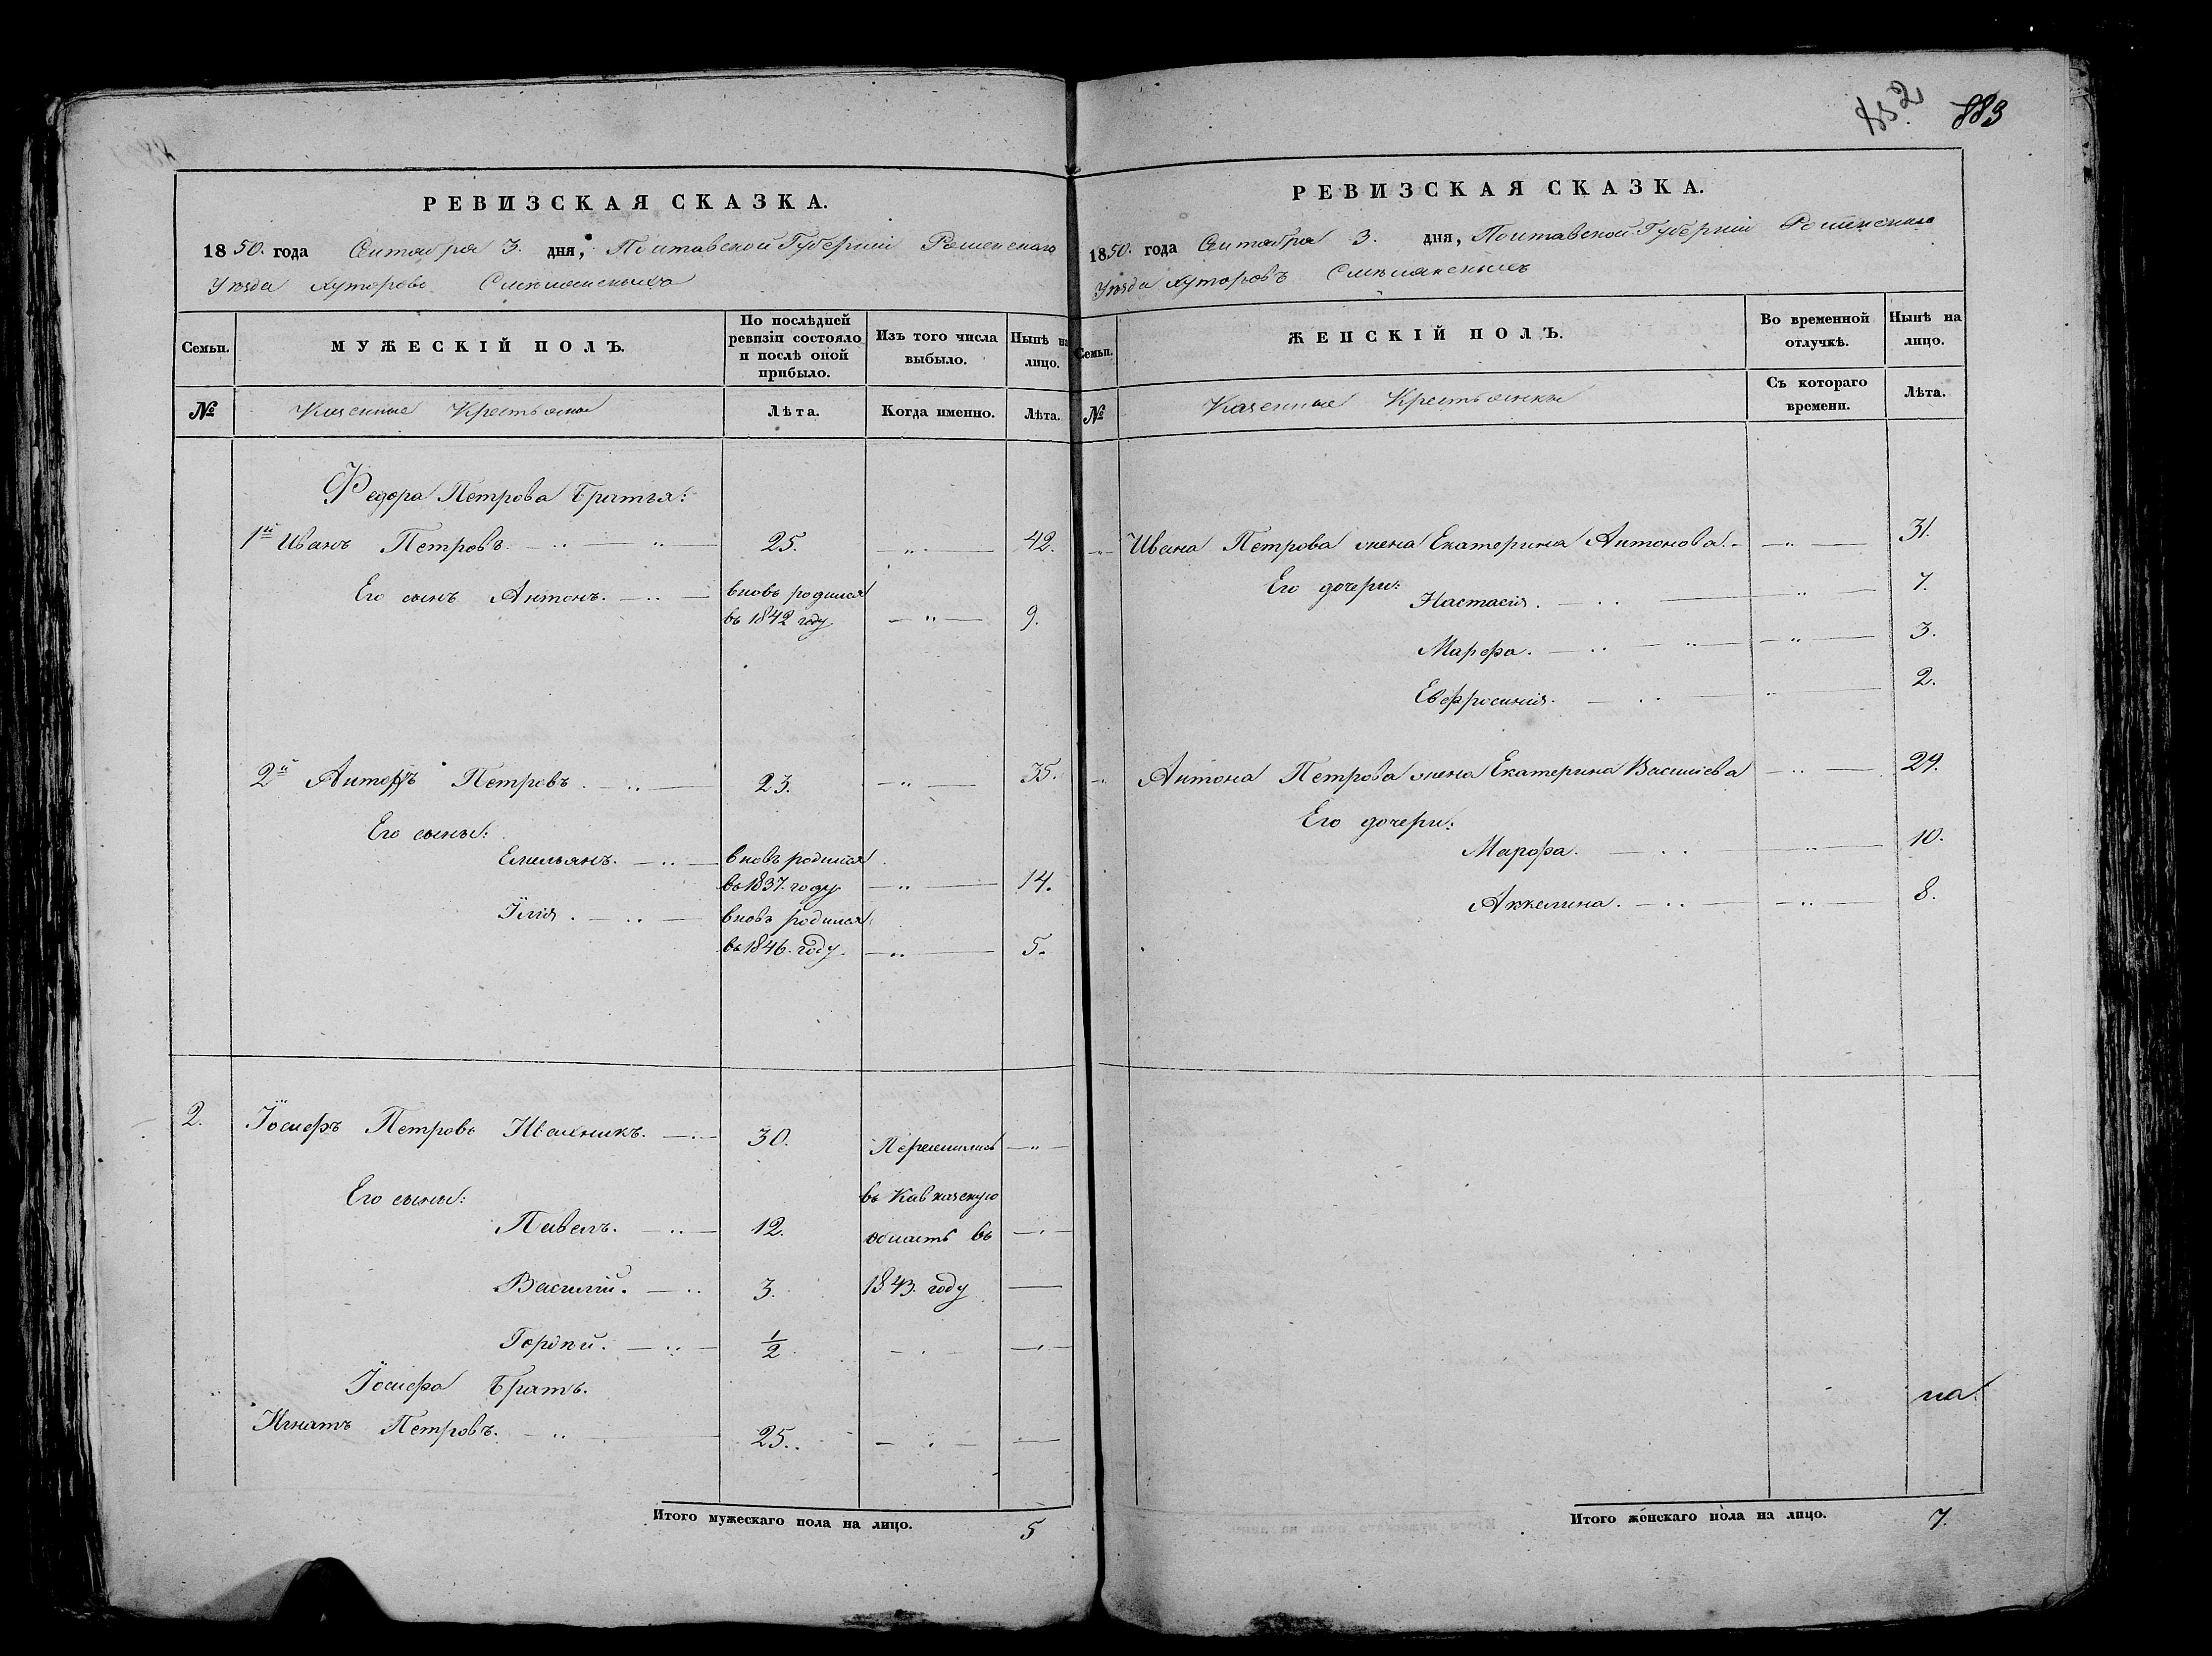 РЕВИЗСКАЯ СКАЗКА.
1850. года Сентября 3. дня, Полтавской Губерніи Роменскаго
Уѣзда Хуторовъ
Семьи.
МУЖЕСКІЙ ПОЛЪ.
По послѣдней
ревизіи состояло
и послѣ оной
прибыло.
Изъ того числа
выбыло.
Нынѣ на
лицо.
№
Казенные Крестьяне
Лѣта.
Когда именно.
Лѣта.
Федора Петрова Братья:
1й Иванъ Петровъ. 25. 42.
Его сынъ Антонъ. вновь родился
въ 1842 году. 9.
2й Антонъ Петровъ. 23. 35.
Его сыны:
Емельянъ. вновь родился
въ 1837. году 14.
Илія. вновь родился
въ 1846. году. 5.
2. Іосифъ Петровъ 30. Переселились
Его сыны: въ Кавказскую
Павелъ. 12. область въ
Василій. 3. 1843. году
Гордѣй. 1/2
Іосифа Братъ.
Игнатъ Петровъ. 25.
Итого мужескаго пола на лицо. 5
883
РЕВИЗСКАЯ СКАЗКА.
1850. года Сентября 3. дня, Полтавской Губерніи Роменскаго
Уѣзда Хуторовъ
Семьи.
ЖЕНСКІЙ ПОЛЪ.
Во временной
отлучкѣ.
Нынѣ на
лицо.
№
Казенные Крестьянки
Съ котораго
времени.
Лѣта.
Ивана Петрова жена Екатерина Антонова. 31.
Его дочери:
Настасія. 7.
Марфа. 3.
Евфросинія. 2.
Антона Петрова жена Екатерина Васильева 29.
Его дочери:
Марфа. 10.
Аккелина. 8.
на
Итого женскаго пола на лицо. 7.